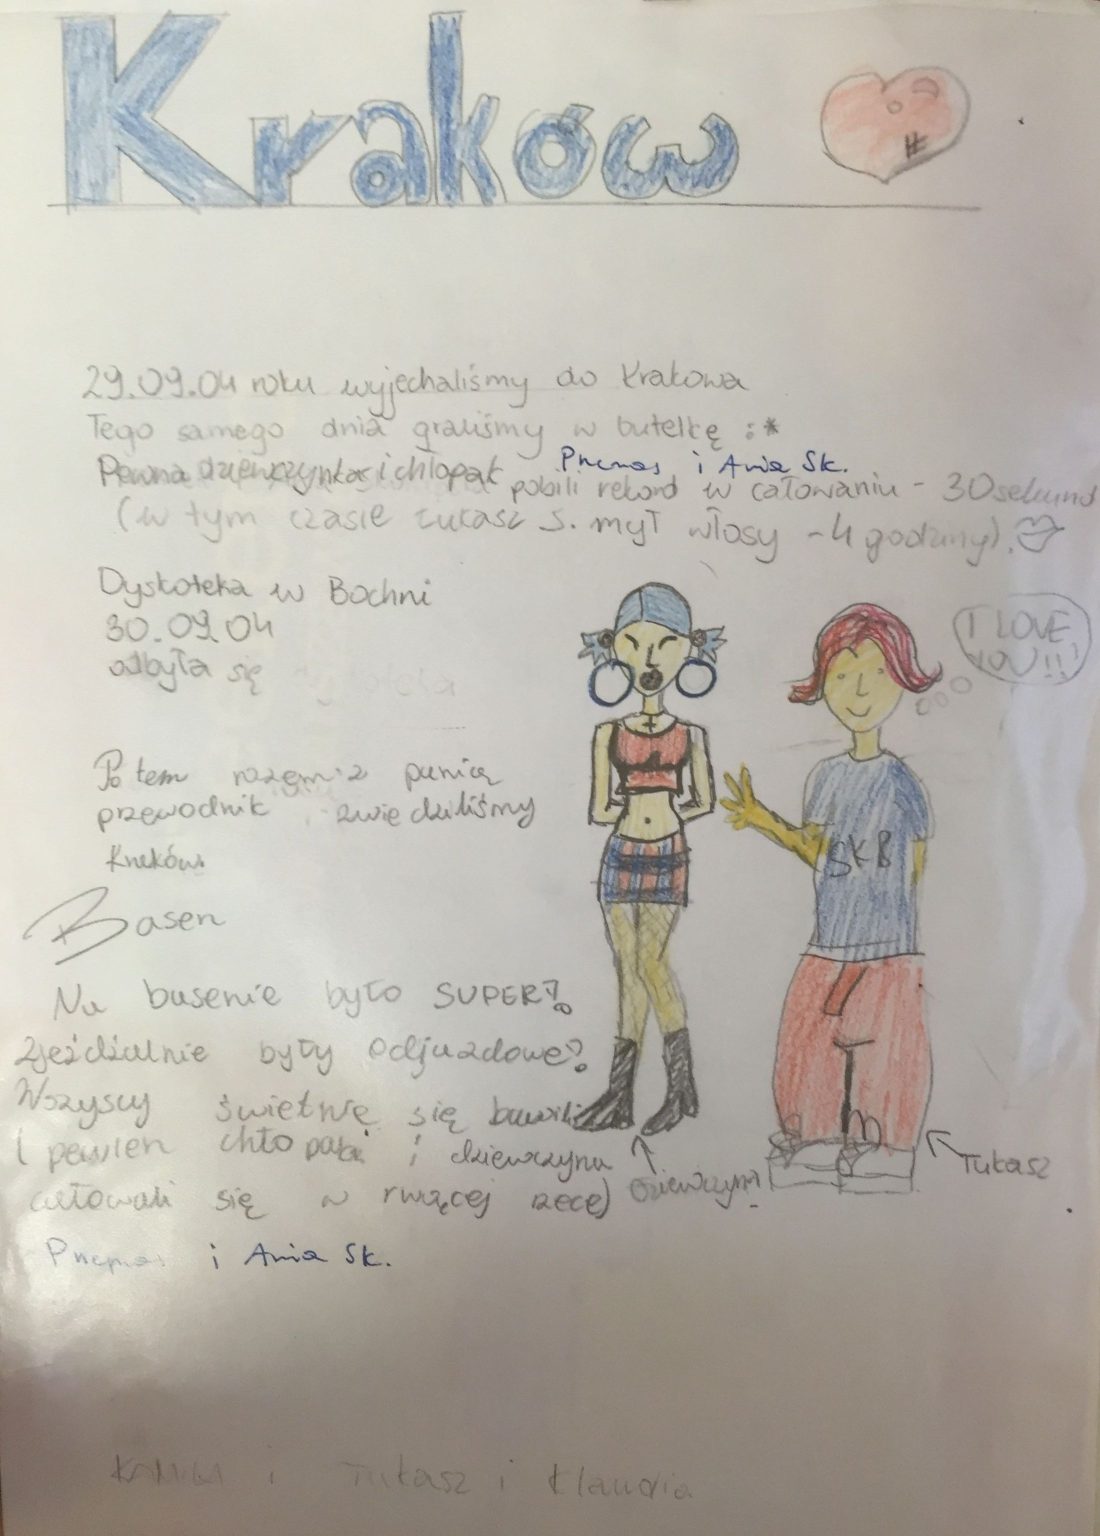 Kraków
29.09.04 roku wyjechaliśmy do Krakowa
Tego samego dnia graliśmy w butelkę :*
Pewna dziewczynka i chłopak pobili rekord w całowaniu - 30 sekund
i Ania Sk.
(w tym czasie Łukasz S. mył włosy ~4 godziny).
Dyskoteka w Bochni
30.09.04
odbyła się
I LOVE
YOU!!!
Potem razem z panią
przewodnik zwiedziliśmy
Kraków
SKB
Basen
Na basenie było SUPER!
Zjeżdżalnie były odjazdowe!
Wszyscy świetnie się bawili
(pewien chłopak i dziewczyna
całowali się w rwącej rzece)
Dziewczyna
Łukasz
i Ania Sk.
i Łukasz i Klaudia